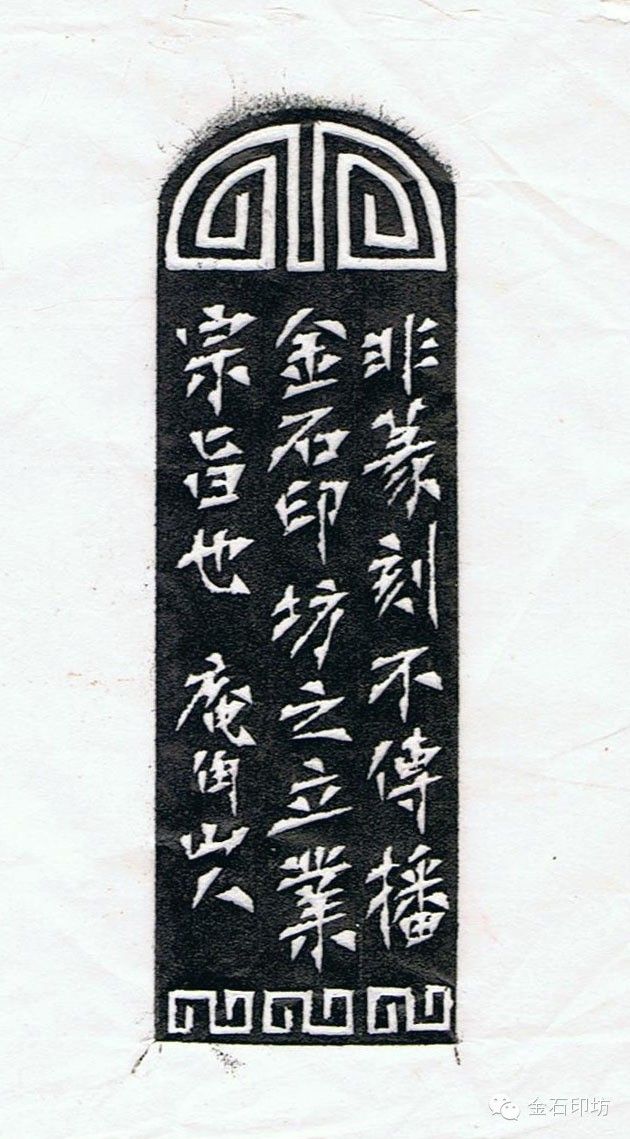 非篆刻不傳播
金石印坊之立業
宗旨也 庵角山人
金石印坊